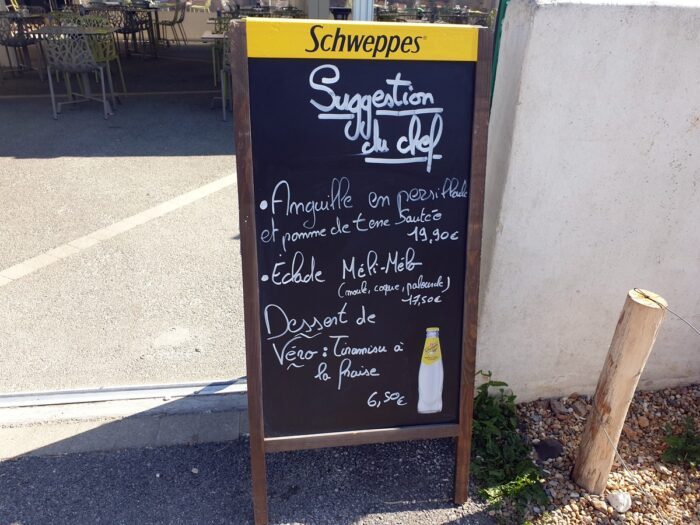 Schweppes
Suggestion
du chef
• Anguille en persillade
et pomme de terre Sautée
19,90€
• Eclade Méli-Mélo
(moule, coque, palourde)
17,50€
Dessert de
Véro : Tiramisu à
la fraise
6,50€